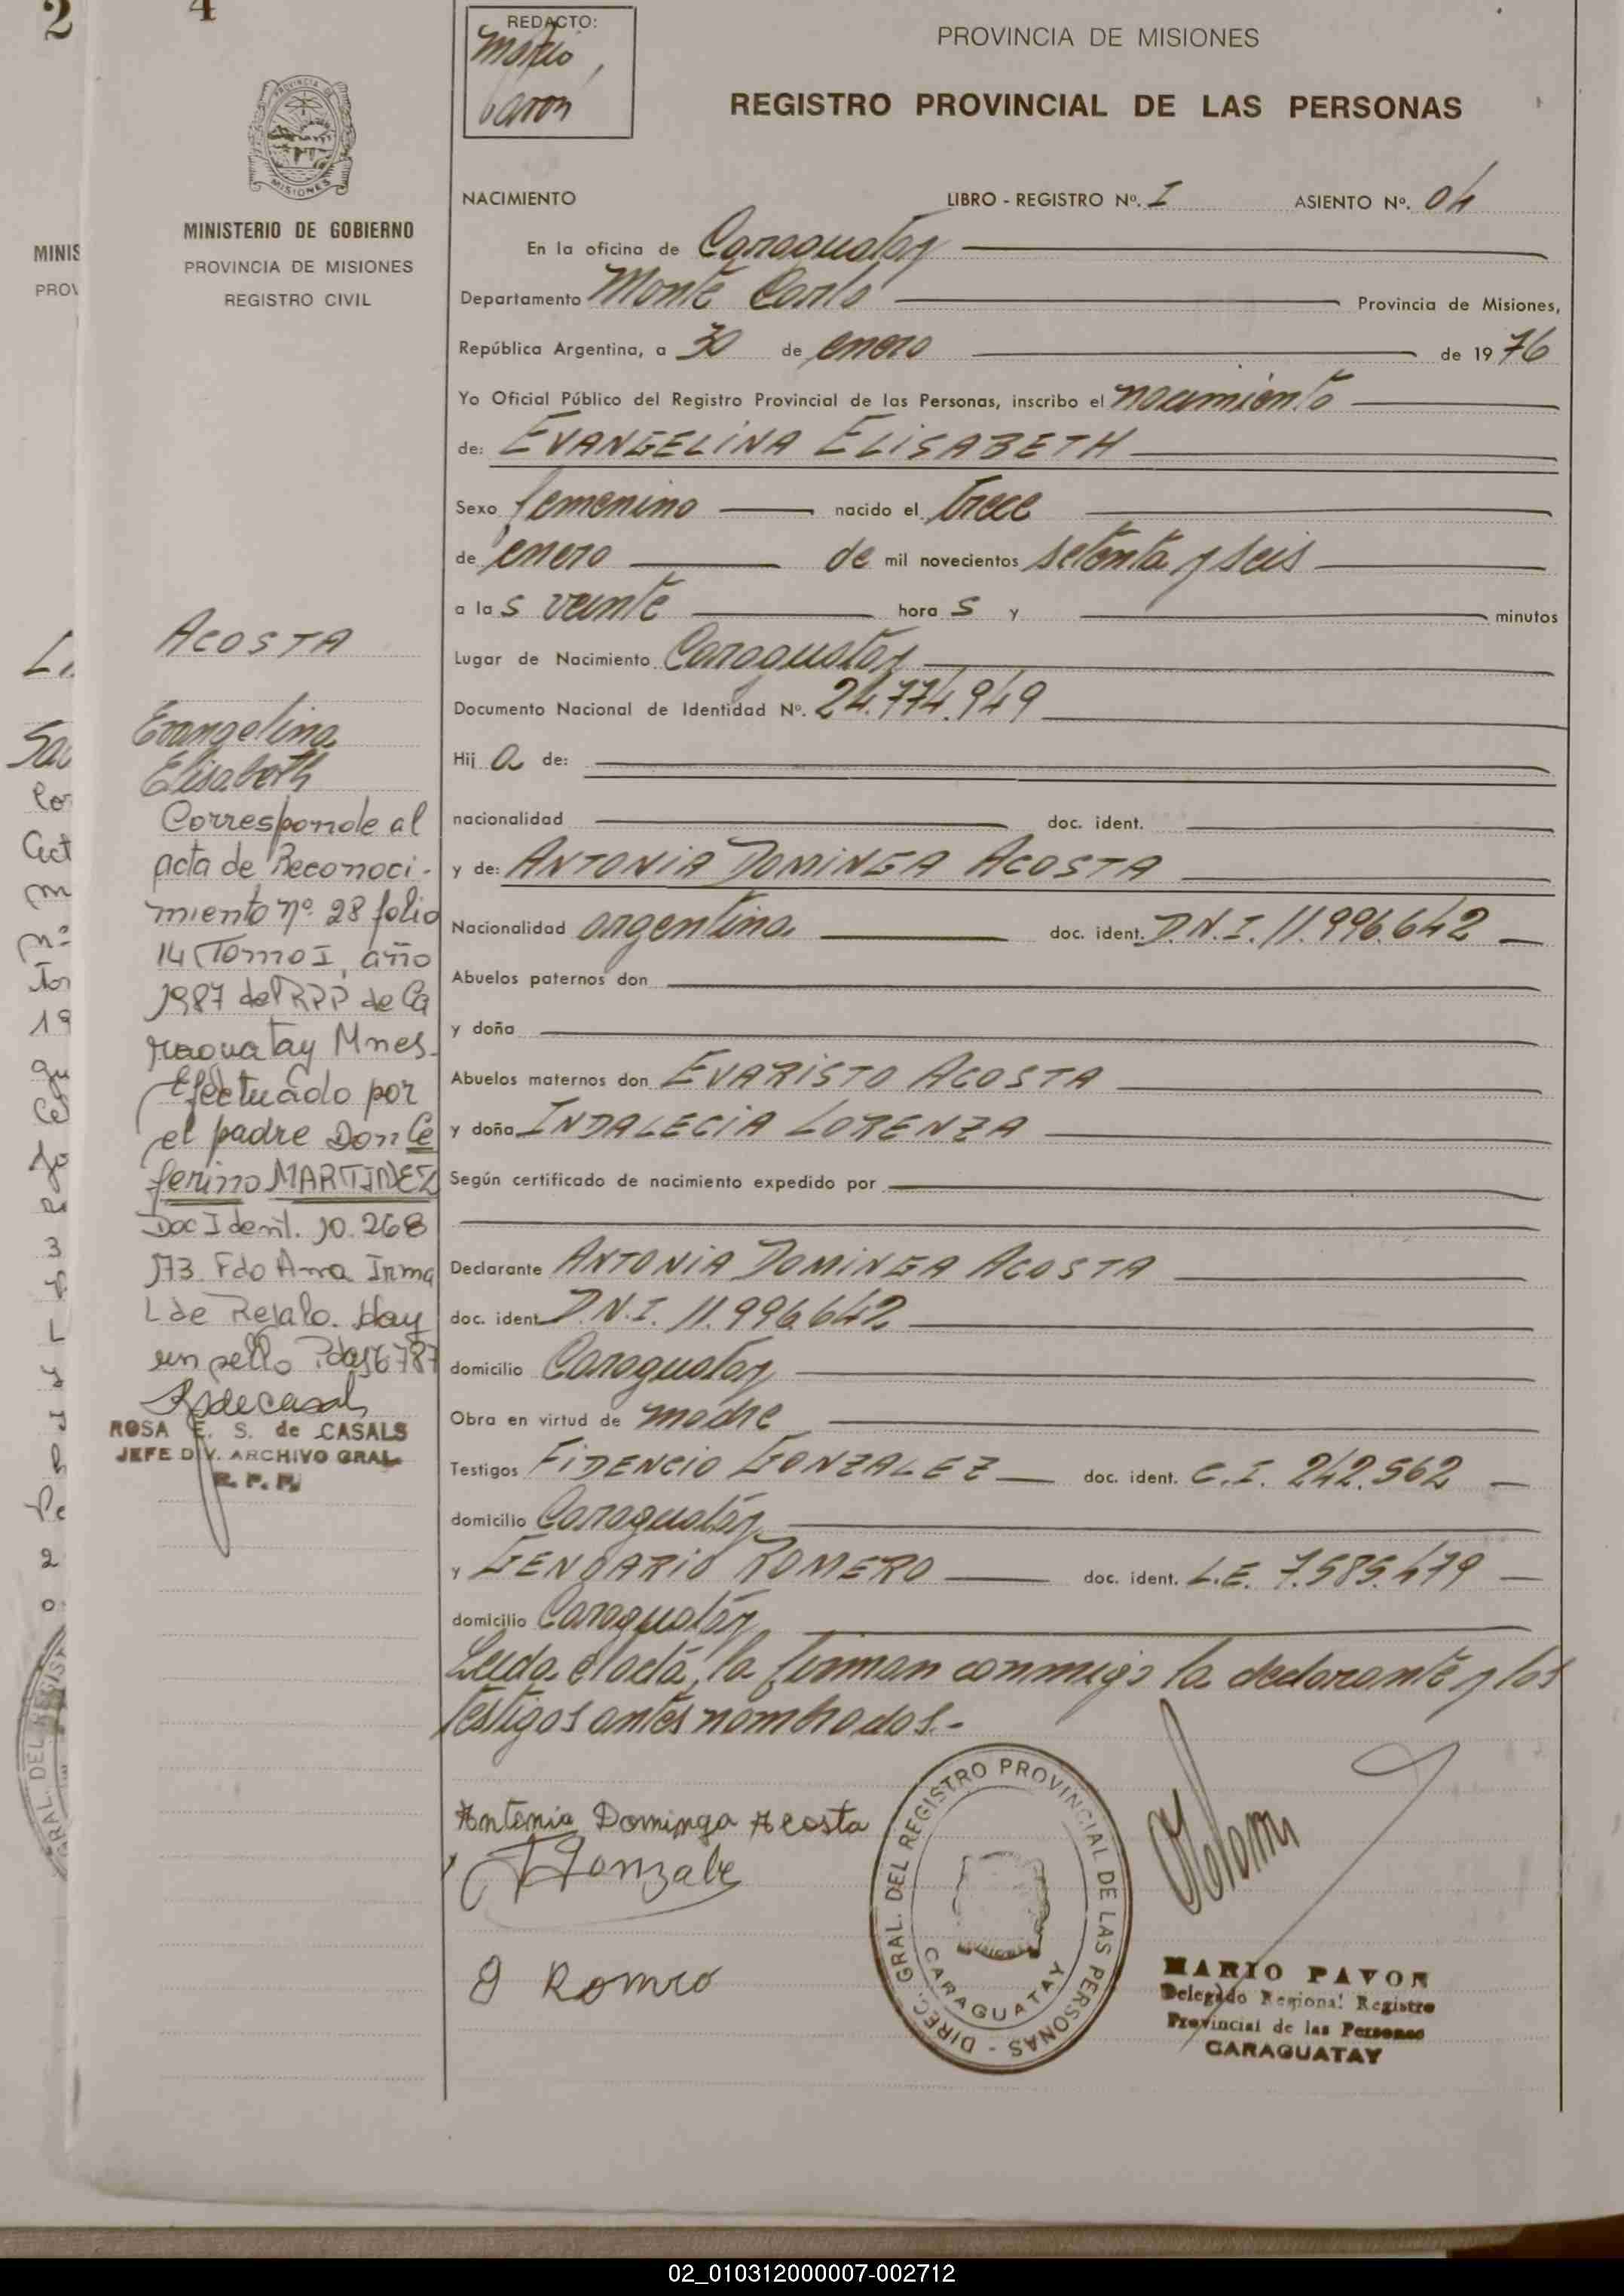 4
REDACTO:
Mario
Pavon
PROVINCIA DE MISIONES
REGISTRO PROVINCIAL DE LAS PERSONAS
PROVINCIA DE
MISIONES
MINISTERIO DE GOBIERNO
PROVINCIA DE MISIONES
REGISTRO CIVIL
NACIMIENTO LIBRO - REGISTRO Nº. I ASIENTO Nº. 04
En la oficina de Caraguatay
Departamento Monte Carlo Provincia de Misiones,
República Argentina, a 30 de enero de 1976
Yo Oficial Público del Registro Provincial de las Personas, inscribo el nacimiento
de: EVANGELINA ELISABETH
Sexo femenino nacido el trece
de enero de mil novecientos setenta y seis
a las veinte horas y minutos
Lugar de Nacimiento Caraguatay
Documento Nacional de Identidad Nº. 24.774.949
Hija de:
nacionalidad doc. ident.
y de: ANTONIA DOMINGA ACOSTA
Nacionalidad argentina doc. ident. D.N.I. 11.996.642
Abuelos paternos don
y doña
Abuelos maternos don EVARISTO ACOSTA
y doña INDALECIA LORENZA
Según certificado de nacimiento expedido por
Declarante ANTONIA DOMINGA ACOSTA
doc. ident. D.N.I. 11.996.642
domicilio Caraguatay
Obra en virtud de madre
Testigos FIDENCIO GONZALEZ doc. ident. C.I. 242.562
domicilio Caraguatáy
y GENOARIO ROMERO doc. ident. L.E. 7.585.479
domicilio Caraguatáy
Leida el acta, la firman conmigo la declarante y los
testigos antes nombrados.-
ACOSTA
Evangelina
Elisabeth
Corresponde al
acta de Reconoci-
miento nº 28 folio
14 Tomo I, año
1987 del RPP de Ca
raguatay Mnes.
Efectuado por
el padre Don Ce
ferino MARTINEZ
Doc Ident. 10.268
173 Fdo Ana Irma
L de Rejala. Hay
un sello
ROSA E. S. de CASALS
JEFE DIV. ARCHIVO GRAL.
R.P.P.
Antonia Dominga Acosta
Gonzale
Romero
DIREC. GRAL. DEL REGISTRO PROVINCIAL DE LAS PERSONAS -
CARAGUATAY
MARIO PAVON
Delegado Regional Registro
Provincial de las Personas
CARAGUATAY
02_010312000007-002712